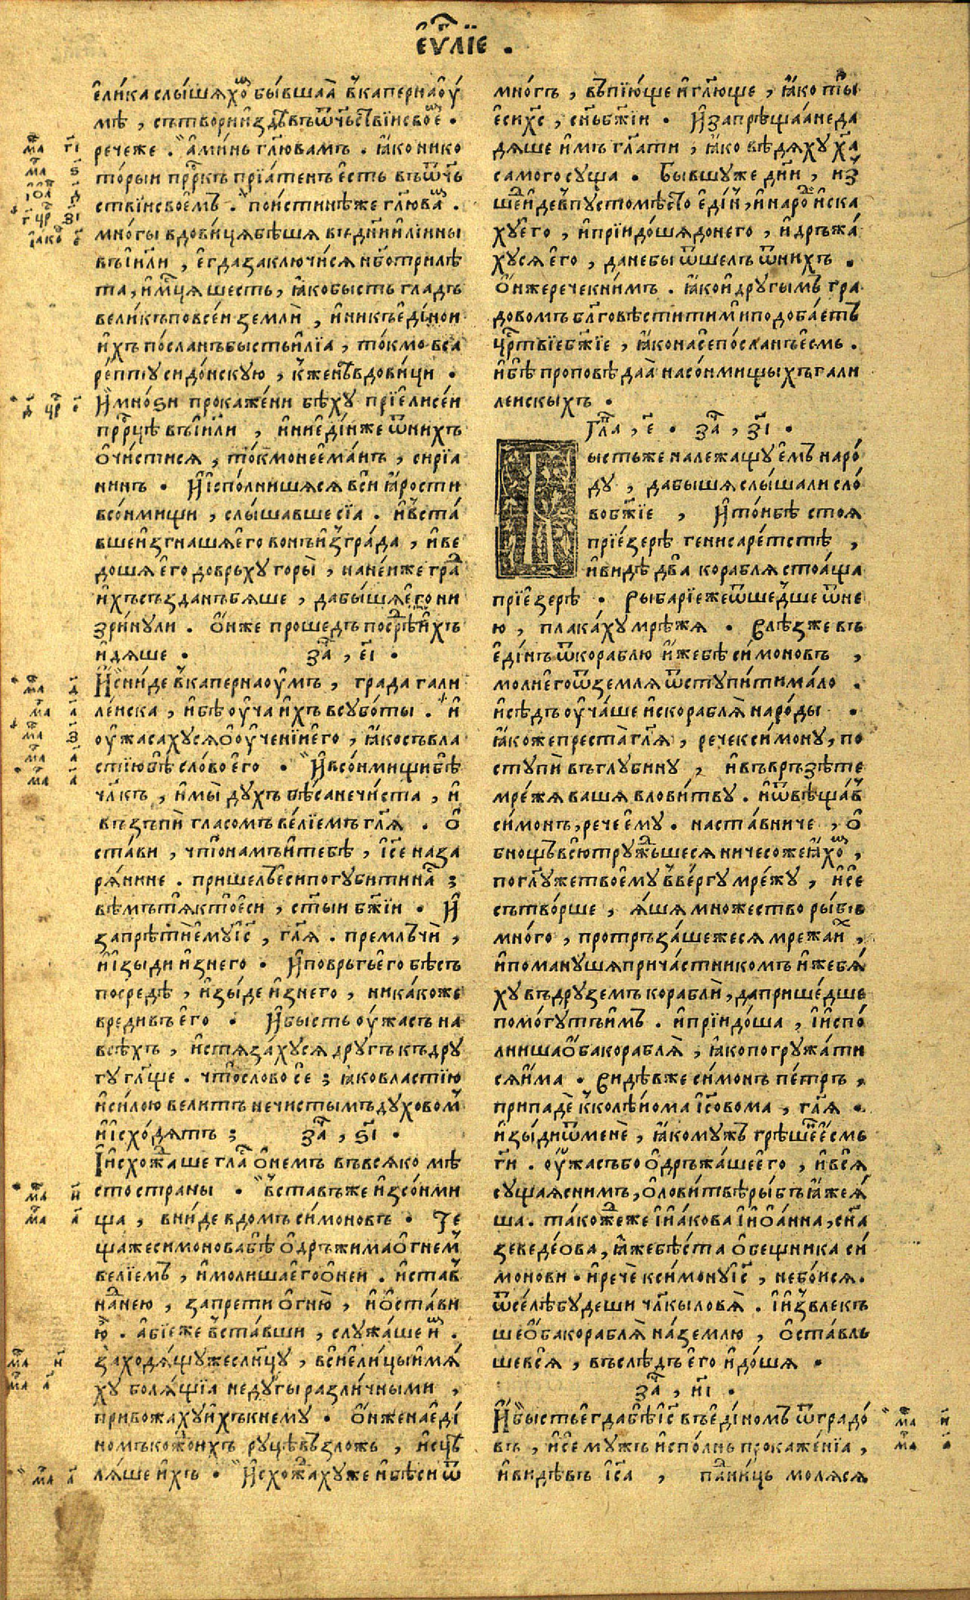 е҆ѵⷢ҇лїе .
е҆лика слы́шѧхоⷨ бы́вшаѧ в̾капернаѻу́
мѣ , сътвори и҆ здѣ въ ѿчⷭ҇твїи свое҆ⷨ .
рече же . а҆ми́нь гл҃ю вамъ . ꙗ҆ко нико
то́рыи прⷪ҇ркъ прїѧ́тенъ е҆сть въ ѿчь
ствїи свое҆мъ . пои́стинѣ же гл҃ю ваⷨ .
мно́гы вдови́цѧ бѣ́шѧ въ дн҃и и҆лїины
въ і҆и҃ли , е҆гда заключи́сѧ нб҃о три лѣ
та , и҆ мⷭ҇цѧ шесть , ꙗ҆ко бысть гладъ
вели́къ по все́и земли̑ , и҆ ни къ е҆ди́нои
и҆хъ по́сланъ бысть и҆лїа , то́кмо в са
ре́птꙋ сидо́нскꙋю , к̾ женѣ вдови́ци .
И҆ мно́ѕи прокаже́ни бѣ́хꙋ при е҆лисе́и
прⷪ҇рцѣ въ і҆и҃ли , и҆ ни е҆ди́н же ѿ ни́хъ
ѡ҆чи́стисѧ , то́кмо неема́нъ , сирїа
нинъ . И҆ и҆спо́лнишѧсѧ вси ꙗ҆́рости
в со́нмищи , слы́шавше сїа . и҆ въста́
вше и҆згнашѧ е҆го во́нъ и҆з гра́да , и҆ ве
до́шѧ е҆го до врьхꙋ горы̀ , на не́иже граⷣ
и҆хъ създанъ бѧше , да бы́шѧ е҆го ни
зри́нꙋли . О҆н же проше́дъ посреⷣѣ и҆хъ
и҆дѧше . заⷱ҇ , е҃і .
И҆ сни́де в̾ капернаѻу́мъ , града гали
ле́иска , и҆ бѣ ѻу҆ча̀ и҆хъ в сꙋбо́ты . и҆
ѻу҆жаса́хꙋсѧ ѡ҆ ѻу҆че́нїи е҆го , ꙗ҆ко съ вла
стїю бѣ сло́во е҆го . И҆ в со́нмищи бѣ
чл҃къ , и҆мы̀ дꙋ́хъ бѣ́са нечи́ста , и҆
възъпи̑ гласомъ ве́лїемъ гл҃ѧ . ѡ҆
ста́ви , что̀ намъ и҆ тебѣ , і҆с҃е наза
рѧ́нине . прише́лъ е҆си погꙋби́ти на́съ ;
вѣмъ тѧ кто̀ е҆си , ст҃ыи бж҃їи . И҆
запрѣти̑ е҆мꙋ і҆с҃ , гл҃ѧ . премлъчи̑ ,
и҆ и҆зы́ди и҆з него . И҆ повръгъ е҆го бѣсъ
посредѣ , и҆зы́де и҆з него , никако́же
вреди́въ е҆го . И҆ бысть ѻу҆жасъ на
всѣхъ , и҆ стѧза́хꙋсѧ дрꙋ́гъ къ дрꙋ
гꙋ гл҃ще . что̀ слово се ; ꙗ҆ко властїю
и҆ си́лою вели́тъ нечи́стымъ дꙋховоⷨ
и҆ и҆схо́дѧтъ ; заⷱ҇ , ѕ҃і .
И҆ и҆схожⷣаше гла́съ ѡ҆ не́мъ въ всѧко мѣ
сто страны̀ . В̾ставъ же и҆з со́нми
ща , вни́де в до́мъ си́моновъ . Те
ща же си́монова бѣ ѡ҆дръжи́ма ѻ҆гнеⷨ
ве́лїемъ , и҆ моли́ша е҆го ѡ҆ не́и . и҆ ставъ
на̀ нею , запрети ѻ҆гню̀ , и҆ ѡ҆ста́ви
ю҆̀ . а҆бїе же въста́вши , слꙋжа́ше и҆ⷨ .
заходѧ́щꙋ же сл҃нцꙋ , вси е҆ли́цы и҆мѧ́
хꙋ болѧщїа недꙋ́гы разли́чными ,
привожа́хꙋ и҆хъ к немꙋ . О҆н же на е҆ди
номъ коⷨжⷣо и҆хъ рꙋцѣ възло́жь , и҆сцѣ
лѧ́ше и҆хъ . И҆схожⷣа́хꙋ же и҆ бѣ́си ѿ
мно́гъ , въпїю́ще и҆ гл҃юще , ꙗ҆ко ты
е҆си хс҃ , сн҃ъ бж҃їи . И҆ запрѣща́а не да
дѧше и҆мъ гл҃ати , ꙗ҆ко вѣ́дѧхꙋ ха҃
самого сꙋща . Бы́вшꙋ же дн҃и , и҆з
ше́д и҆де в пꙋ́сто мѣсто е҆ди́н , и҆ наро́ди и҆ска
хꙋ е҆го , и҆ прїидо́шѧ до него , и҆ дръжа́
хꙋсѧ е҆го , да не бы ѿше́лъ ѿ ни́хъ .
О҆н же рече к ни́мъ . ꙗ҆ко и҆ дрꙋ́гымъ гра
дово́мъ бл҃говѣсти́ти ми подоба́етъ
црⷭ҇твїе бж҃їе , ꙗ҆ко на се по́сланъ е҆смь .
и҆ бѣ проповѣ́даѧ на со́нмищыхъ гали
ле́искыхъ .
Глⷡ҇а , е҃ . заⷱ҇ , з҃і .
Бысть же належа́щꙋ е҆мꙋ наро́
дꙋ , да бы́шѧ слы́шали сло́
во бж҃їе , И҆ то́и бѣ стоѧ
при е҆́зерѣ генисаре́тстѣ ,
и҆ ви́дѣ два корабля стоѧ́ща
при е҆́зерѣ . Рыбарїе же ѿше́дше ѿ не
ю , плака́хꙋ мрѣ́жѧ . Влѣз же въ
е҆ди́нъ ѿ кораблю̀ и҆же бѣ си́моновъ ,
моли̑ е҆го ѿ землѧ ѿстꙋпи́ти ма́ло .
и҆ сѣ́дъ ѻу҆ча́ше и҆с кораблѧ̀ наро́ды .
ꙗ҆коже преста̀ гл҃ѧ , рече к си́монꙋ , по
стꙋпи̑ въ глꙋби́нꙋ , и҆ въврьзѣте
мре́жѧ ва́шѧ в лови́твꙋ . и҆ ѿвѣща́въ
си́монъ , рече е҆мꙋ . наста́вниче , ѻ҆
б нощъ всю̀ трꙋжⷣьшесѧ ничесо́же ꙗ҆́хоⷨ ,
по гл҃ꙋ же твое́мꙋ въве́ргꙋ мре́жꙋ , и҆ се
сътво́рше , ѧ҆шѧ мно́жество ры́бъ
мно́го , протръза́шежесѧ мрежа и҆́хъ ,
и҆ поманꙋшѧ прича́стникомъ и҆же бѧ
хꙋ въ дрꙋземъ корабли̑ , да прише́дше
помо́гꙋтъ и҆мъ . и҆ прїидо́ша , и҆ и҆спо́
лниша ѻ҆ба кораблѧ̀ , ꙗ҆ко погрꙋжа́ти
сѧ и҆ма . Видѣв же си́монъ пе́тръ ,
припадѐ к̾ колѣнома і҆с҃овома , гл҃ѧ .
и҆зы́ди ѿ менѐ , ꙗ҆ко мꙋжъ грѣ́шеⷩ е҆смь
гⷭ҇и . ѻу҆́жасъ бо ѡ҆дръжа́ше е҆го , и҆ всѧ̀
сꙋщаѧ с ни́мъ , ѡ҆ лови́твѣ ры́бъ ꙗ҆же ѧ҆
ша . та́кожⷣе же і҆ и҆а́кова і҆ и҆ѻа́нна , сн҃а
зеведе́ова , ꙗ҆же бѣ́ста ѻ҆бещника си́
монови . и҆ речѐ к си́монꙋ і҆с҃ , не бо́исѧ .
ѿсе́лѣ бꙋ́деши чл҃кы ловѧ̀ . І҆ и҆звлекъ
ше ѻ҆ба кораблѧ̀ на́ землю , ѡ҆ста́вль
ше всѧ̀ , въслѣдъ е҆го и҆до́шѧ .
заⷱ҇ , и҃і .
И҆ бысть е҆гда бѣ і҆с҃ въ е҆ди́номъ ѿ градо́
въ , и҆ се мꙋ́жъ и҆спо́лнь прокаже́нїа ,
и҆ ви́дѣвъ і҆с҃а , паⷣ ни́ць молѧсѧ